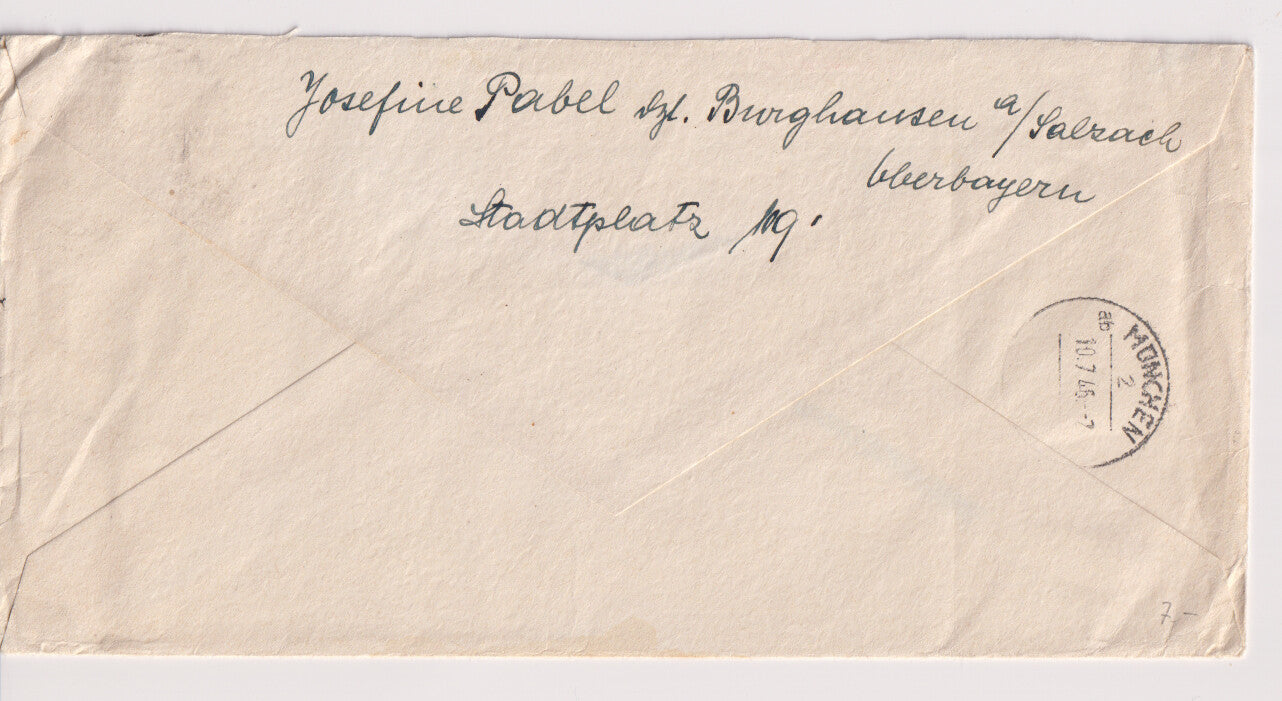 Josefine Pabel dzt. Burghausen a/Salzach
Oberbayern
Stadtplatz 109.
MÜNCHEN
2
ab
10.7.46.-7
7-